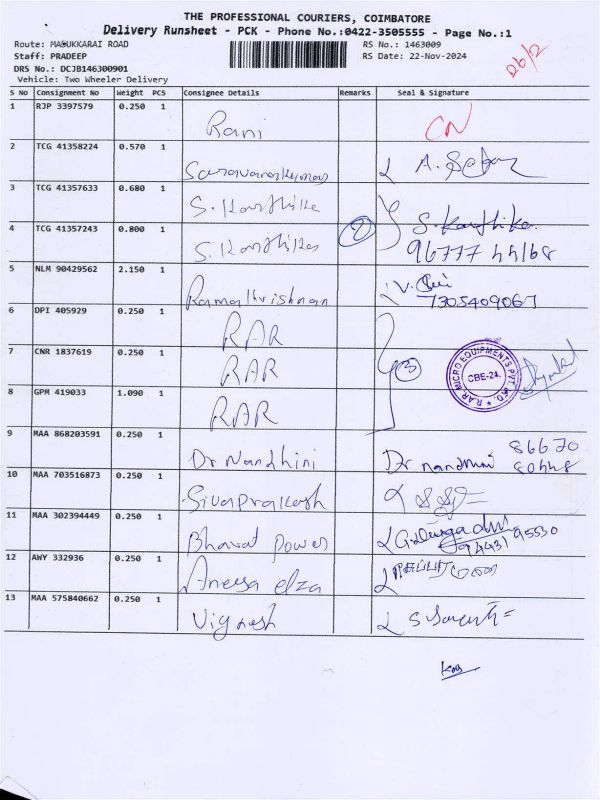 THE PROFESSIONAL COURIERS, COIMBATORE
Delivery Runsheet - PCK - Phone No.:0422-3505555 - Page No.:1
Route: MADUKKARAI ROAD RS No.: 1463009
Staff: PRADEEP RS Date: 22-Nov-2024
DRS No.: DCJB146300901
Vehicle: Two Wheeler Delivery
26/2
S No Consignment No Weight PCS Consignee Details Remarks Seal & Signature
1 RJP 3397579 0.250 1 Rani CN
2 TCG 41358224 0.570 1 Saravanakumar
3 TCG 41357633 0.680 1 S. Karthika S. Karthika.
4 TCG 41357243 0.800 1 S. Karthika 2 96777 44168
5 NLM 90429562 2.150 1 Ramakrishnan 7305409067
6 DPI 405929 0.250 1 RAR
7 CNR 1837619 0.250 1 RAR 3 RAR MICRO EQUIPMENTS PVT. LTD. CBE-24.
8 GPM 419033 1.090 1 RAR
9 MAA 868203591 0.250 1 Dr Nandhini Dr nandhini 86670 80448
10 MAA 703516873 0.250 1 Sivaprakash
11 MAA 302394449 0.250 1 Bharat power 94431 95530
12 AWY 332936 0.250 1 Aneesa elza
13 MAA 575840662 0.250 1 Vignesh